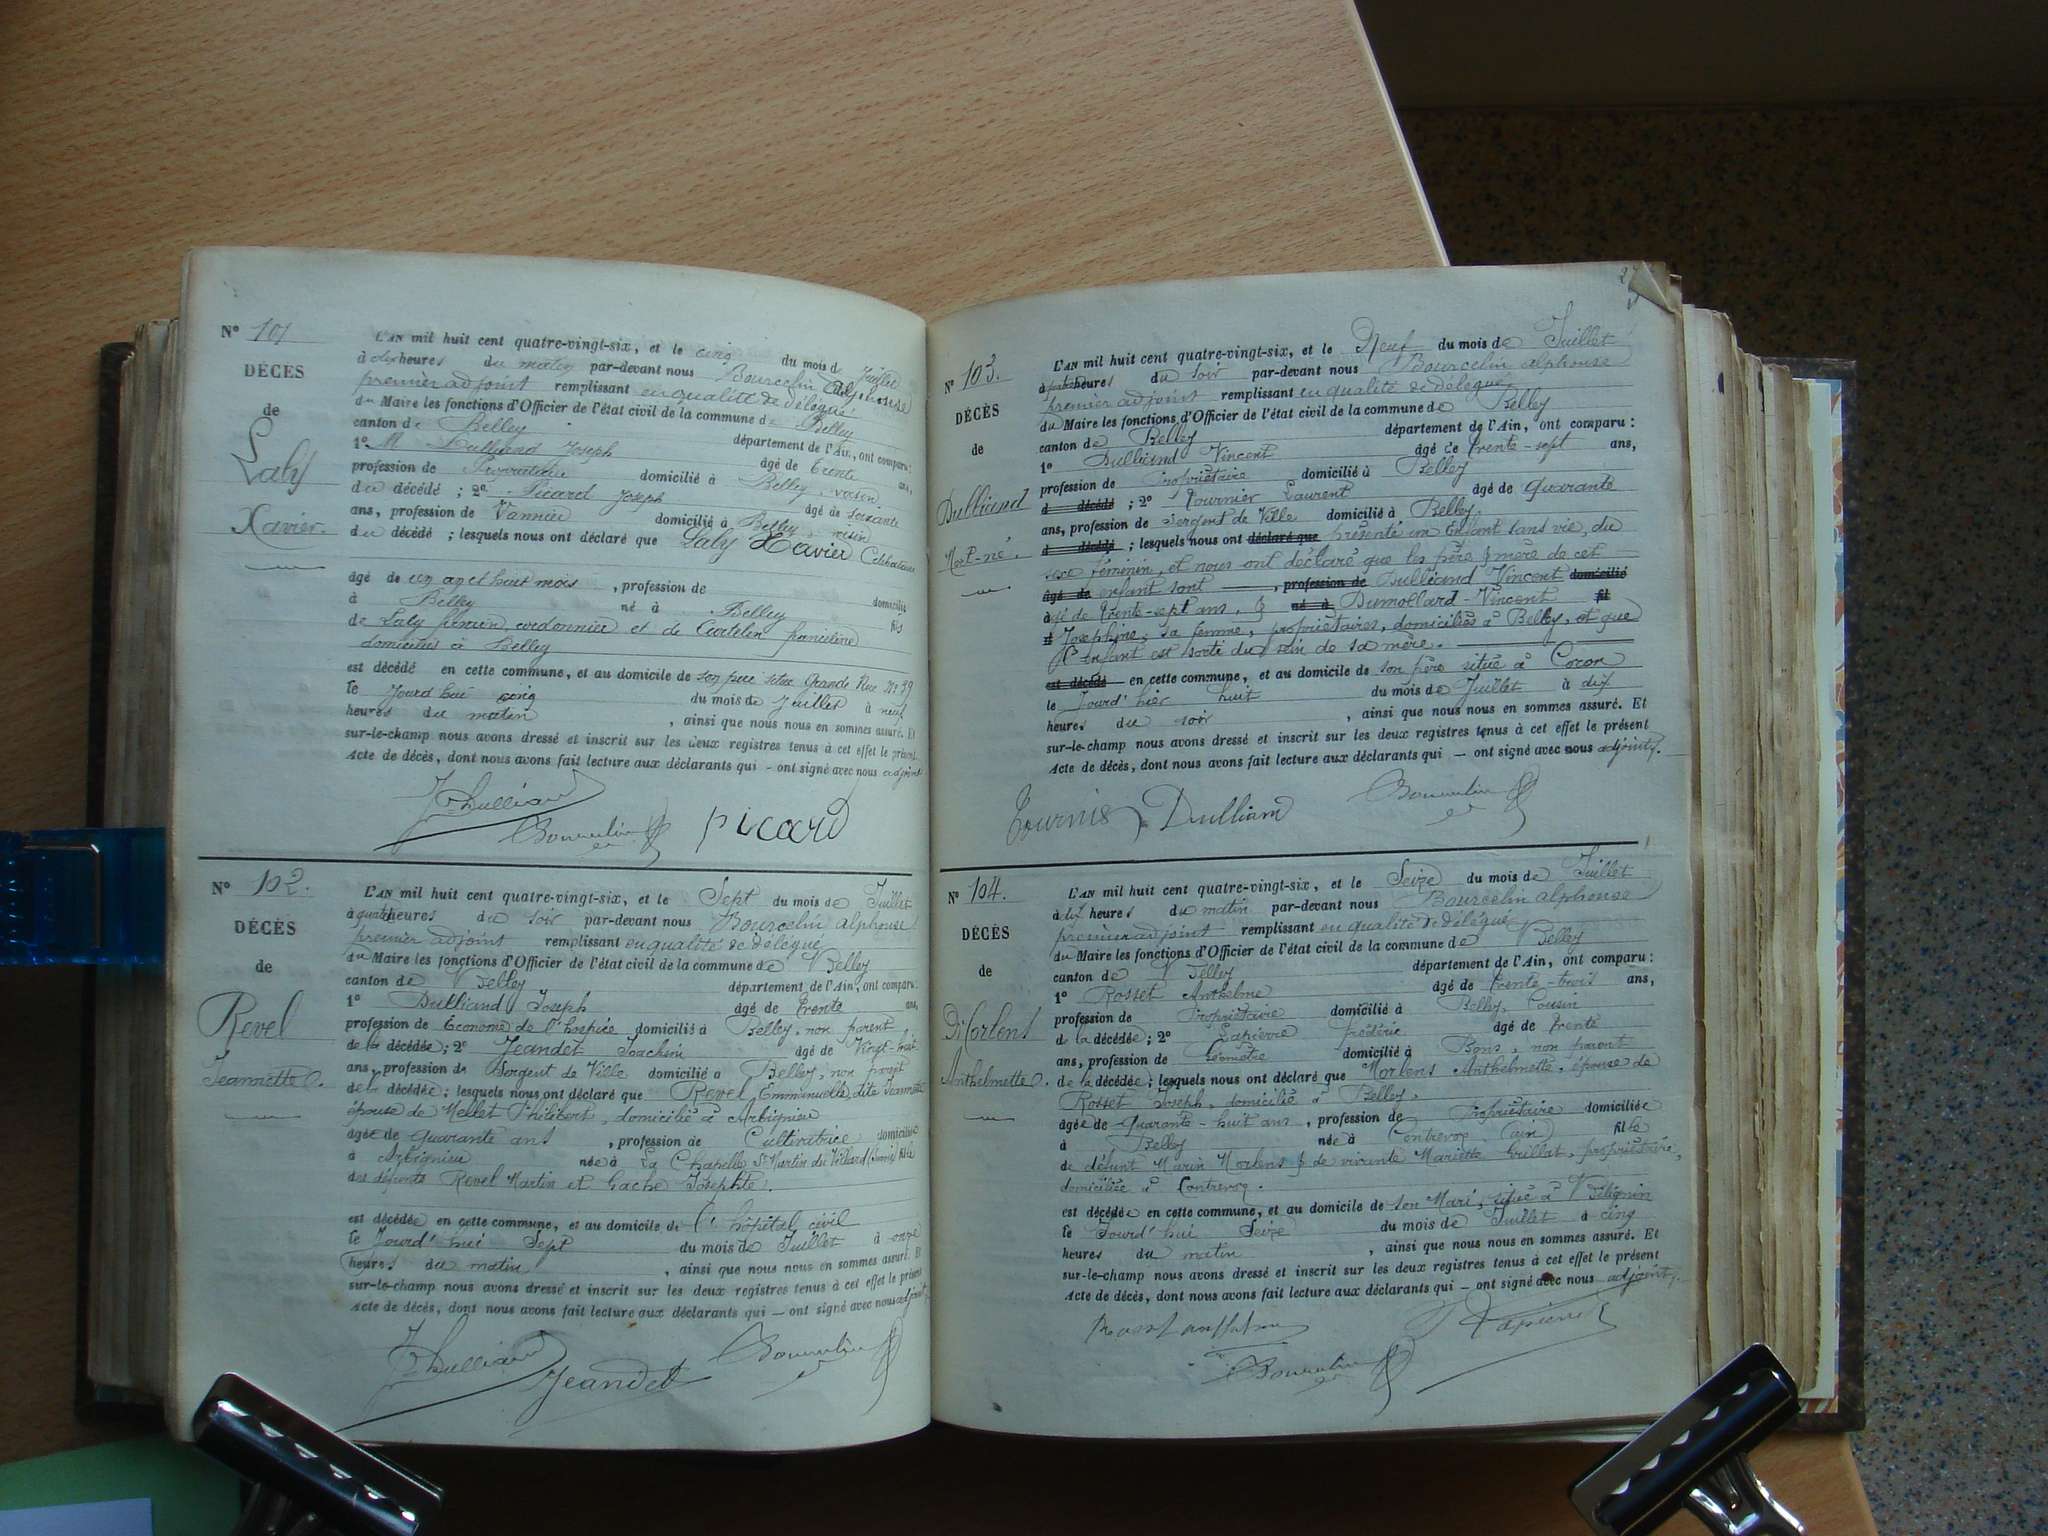 N° 101
DÉCÈS
de
Laly
Xavier.
L'AN mil huit cent quatre-vingt-six, et le cinq du mois de Juillet
à dix heures du matin par-devant nous Bourcelin Alphonse
premier adjoint remplissant en qualité de délégué
du Maire les fonctions d'Officier de l'état civil de la commune de Belley
canton de Belley département de l'Ain, ont comparu :
1° M Dulliand Joseph âgé de trente ans,
profession de Propriétaire domicilié à Belley, voisin
du décédé ; 2° Picard Joseph âgé de soixante
ans, profession de Vannier domicilié à Belley, voisin
du décédé ; lesquels nous ont déclaré que Laly Xavier Célibataire
âgé de un an et huit mois , profession de domicilié
à Belley né à Belley fils
de Laly cordonnier et de franceline
domiciliés à Belley
est décédé en cette commune, et au domicile de son père situé Grande Rue N° 39
le Jourd'hui cinq du mois de Juillet à neuf
heures du matin , ainsi que nous nous en sommes assuré. Et
sur-le-champ nous avons dressé et inscrit sur les deux registres tenus à cet effet le présent
Acte de décès, dont nous avons fait lecture aux déclarants qui — ont signé avec nous adjoint
Jh Dulliand
Bourcelin picard
N° 102.
DÉCÈS
de
Revel
Jeannette.
L'AN mil huit cent quatre-vingt-six, et le Sept du mois de Juillet
à quatre heures du soir par-devant nous Bourcelin Alphonse
premier adjoint remplissant en qualité de délégué
du Maire les fonctions d'Officier de l'état civil de la commune de Belley
canton de Belley département de l'Ain, ont comparu :
1° Dulliand Joseph âgé de trente ans,
profession de Econome de l'hospice domicilié à Belley, non parent
de la décédée ; 2° Jeandet Joachim âgé de Vingt-huit
ans, profession de Sergent de Ville domicilié à Belley, non parent
de la décédée ; lesquels nous ont déclaré que Revel Emmanuelle, dite Jeannette
épouse de Mellet Philibert, domicilié à Arbignieu
âgée de quarante ans , profession de Cultivatrice domiciliée
à Arbignieu née à La Chapelle St Martin du Villard (Savoie) fille
des défunts Revel Martin et Gache Josephte.
est décédée en cette commune, et au domicile de l'hôpital civil
le Jourd'hui Sept du mois de Juillet à onze
heures du matin , ainsi que nous nous en sommes assuré. Et
sur-le-champ nous avons dressé et inscrit sur les deux registres tenus à cet effet le présent
Acte de décès, dont nous avons fait lecture aux déclarants qui — ont signé avec nous adjoint
Jh Dulliand Jeandet Bourcelin
N° 103.
DÉCÈS
de
Dulliand
Mort-né.
L'AN mil huit cent quatre-vingt-six, et le Neuf du mois de Juillet
à heures du soir par-devant nous Bourcelin Alphonse
premier adjoint remplissant en qualité de délégué
du Maire les fonctions d'Officier de l'état civil de la commune de Belley
canton de Belley département de l'Ain, ont comparu :
1° Dulliand Vincent âgé de trente-sept ans,
profession de Propriétaire domicilié à Belley
d décédé ; 2° Tournier Laurent âgé de quarante
ans, profession de Sergent de Ville domicilié à Belley,
d décédé ; lesquels nous ont déclaré que présenté un Enfant sans vie, du
sexe féminin, et nous ont déclaré que les père & mère de cet
âgé de enfant sont , profession de Dulliand Vincent domicilié
âgé de trente-sept ans, & né à Dumollard-Vincent fil
d Josephine, sa femme, propriétaires, domiciliés à Belley, et que
l'Enfant est sorti du sein de sa mère.
est décédé en cette commune, et au domicile de son père situé à Coron
le Jourd'hier huit du mois de Juillet à dix
heures du soir , ainsi que nous nous en sommes assuré. Et
sur-le-champ nous avons dressé et inscrit sur les deux registres tenus à cet effet le présent
Acte de décès, dont nous avons fait lecture aux déclarants qui — ont signé avec nous adjoint.
Tournier Dulliand Bourcelin
N° 104.
DÉCÈS
de
Morlens
Anthelmette.
L'AN mil huit cent quatre-vingt-six, et le Seize du mois de Juillet
à dix heures du matin par-devant nous Bourcelin Alphonse
premier adjoint remplissant en qualité de délégué
du Maire les fonctions d'Officier de l'état civil de la commune de Belley
canton de Belley département de l'Ain, ont comparu :
1° Rosset Anthelme âgé de trente-trois ans,
profession de Propriétaire domicilié à Belley, Cousin
de la décédée ; 2° Lapierre frédéric âgé de trente
ans, profession de Géomètre domicilié à Bons, non parent
de la décédée ; lesquels nous ont déclaré que Morlens Anthelmette, épouse de
Rosset Joseph, domicilié à Belley,
âgée de quarante-huit ans , profession de Propriétaire domiciliée
à Belley née à Contrevoz (ain) fille
de défunt Marin Morlens & de vivante Mariette Grillat, propriétaire,
domiciliée à Contrevoz.
est décédée en cette commune, et au domicile de son Mari, situé à Billignin
le Jourd'hui Seize du mois de Juillet à cinq
heures du matin , ainsi que nous nous en sommes assuré. Et
sur-le-champ nous avons dressé et inscrit sur les deux registres tenus à cet effet le présent
Acte de décès, dont nous avons fait lecture aux déclarants qui — ont signé avec nous adjoint.
Lapierre
Bourcelin